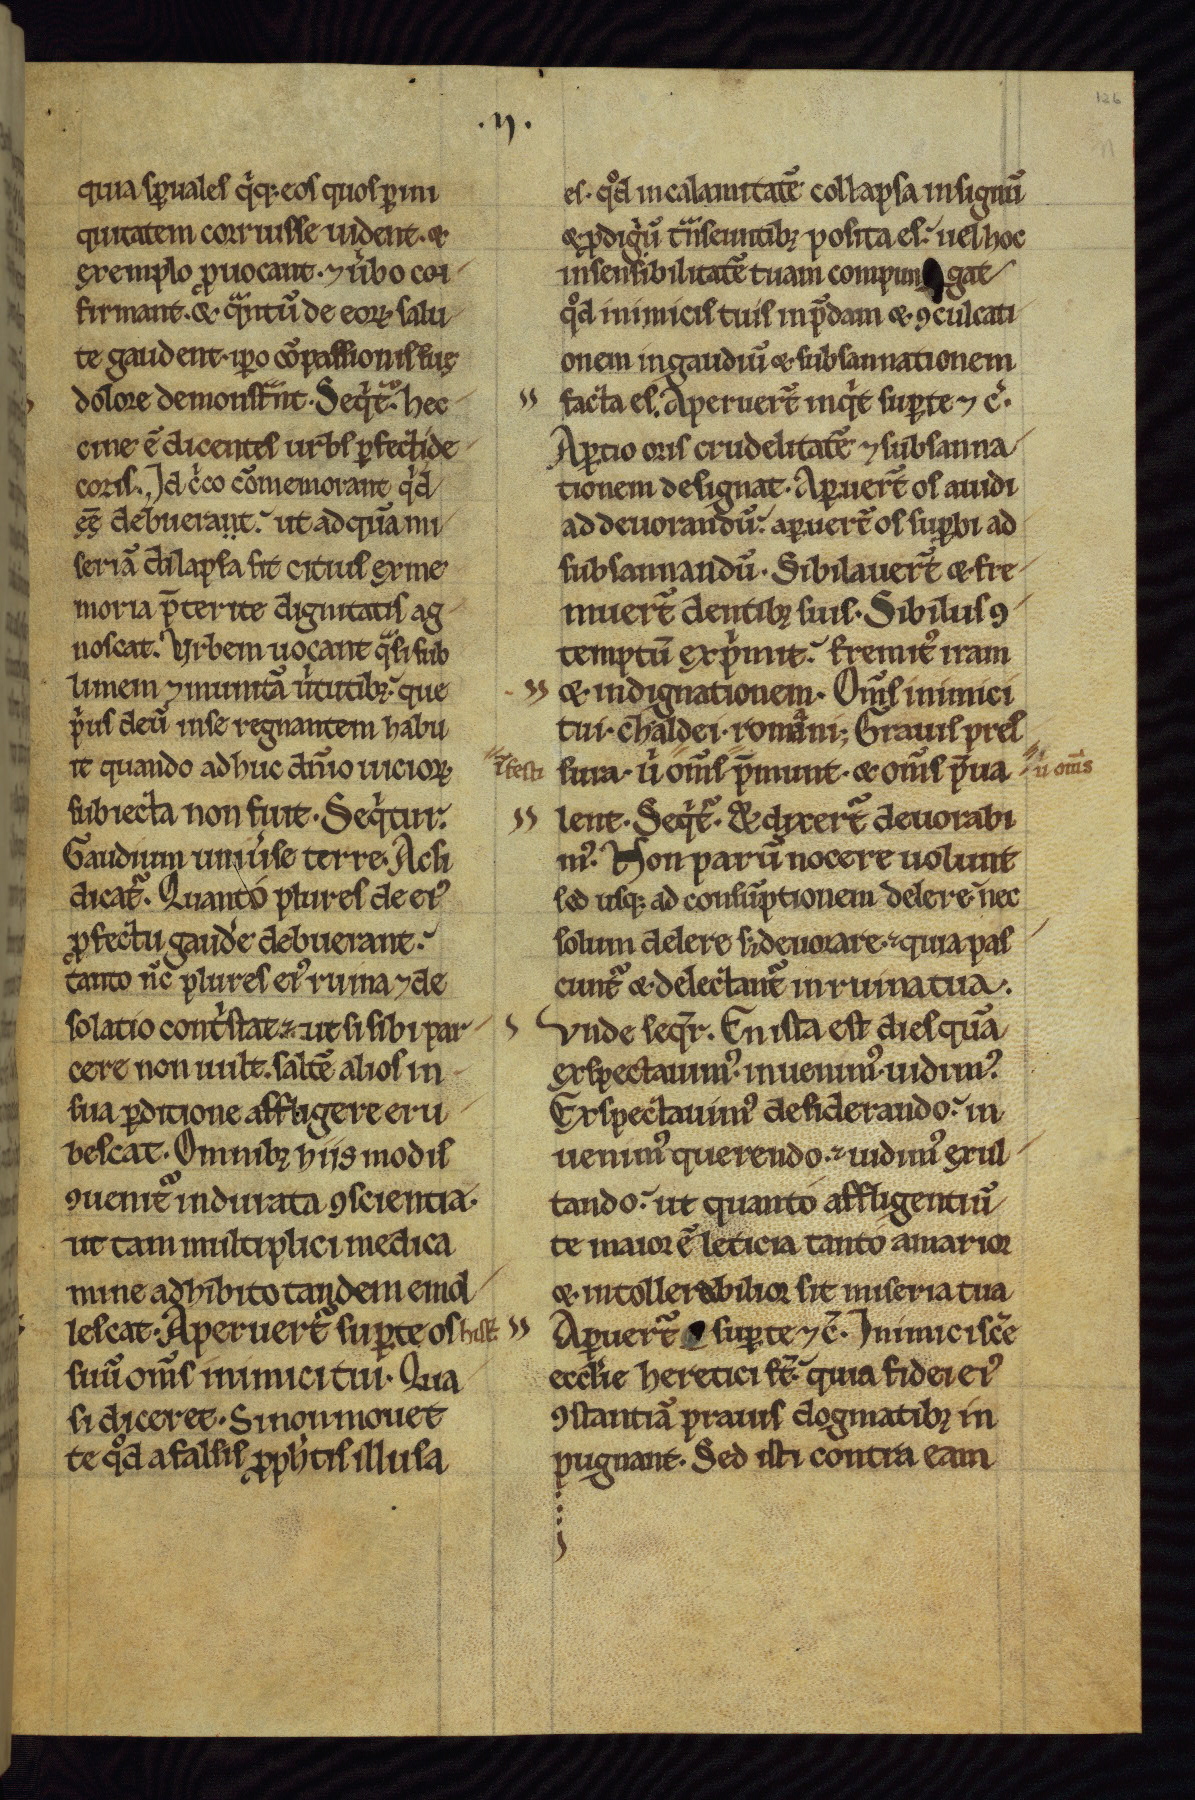 126
.ij.
quia sp̄uales q̇q; eos quos ꝑ ini
quitatem corruisse uident. &
exemplo ꝓuocant. ⁊ u̇bo con
firmant. & qͣntū de eoꝝ salu
te gaudent. ip̄o cōpassionis suę
dolore demonstͣnt. Seq̇tᷣ. hec
cine ē dicentes urbs ꝑfecti de
coris. Id c̓co cōmemorant q̇d
ee̅ debuerant. ut ad quā mi
seriā dilapsa sit citius ex me
moria p̄terite dignitatis ag
noscat. Vrbem uocant qͣsi sub
limem ⁊ munitā u̓tutibꝫ que
p̓us deū in se regnantem habu
it quando adhuc dn̄io uicioꝝ
subiecta non fuit. Seq̇tur.
Gaudium uniu̓se terre. Ac si
dicatᷣ. Quanto plures de ei᷒
ꝓfectu gaude̓ debuerant.
tanto nc̄ plures ei᷒ ruina ⁊ de
solatio cont̓stat. ut si sibi par
cere non uult. saltē alios in
sua ꝑditione affligere eru
bescat. Omnibꝫ hiis modis
ꝯuenitᷣ indurata ꝯscientia.
ut tam multiplici medica
mine adhibito tandem emol
lescat. Aperuert̄ suꝑ te os hist̄
suū om̄s inimici tui. Qua
si diceret. Si non mouet
te qͦd a falsis ꝓph̓tis illusa
es. qͦd in calamitatē collapsa in signū
& ꝓdigiū tͣnseuntibꝫ posita es. uel hoc
insensibilitatē tuam compun gat
qͦd inimicis tuis in p̄dam & ꝯculcati
onem in gaudiū & subsannationem
facta es. Aperuert̄ inq̇t suꝑ te ⁊ c̓.
Aꝑtio oris crudelitatē ⁊ subsanna
tionem designat. Aꝑuert̄ os auidi
ad deuorandū. aꝑuert̄ os suꝑbi ad
subsannandū. Sibilauert̄ & fre
muert̄ dentibꝫ suis. Sibilus ꝯ
temptū exp̓mit. fremit᷒ iram
& indignationem. Om̄s inimici
tui. chaldei. romani; Grauis pres
īfesti sura. u̓ om̄s p̄munt. & om̄s p̄ua u̓ om̄s
lent. Seq̇tᷣ. & dixert̄ deuorabi
m᷒. Non parū nocere uolunt
sed usq; ad consūptionem delere. nec
solum delere sꝫ deuorare. quia pas
cuntᷣ & delectantᷣ in ruina tua.
Vnde seqr̄. En ista est dies quā
exspectauim᷒. inuenim᷒. uidim᷒.
Exspectauim᷒ desiderando. in
uenim᷒ querendo. uidim᷒ exul
tando. ut quanto affligentiū
te maior ē leticia tanto amarior
& intollerabilior sit miseria tua
Aꝑuert̄ suꝑ te ⁊ c̄. Inimici sc̄e
eccl̓ie heretici st̄. quia fidei ei᷒
ꝯstantiā prauis dogmatibꝫ in
pugnant. Sed isti contra eam